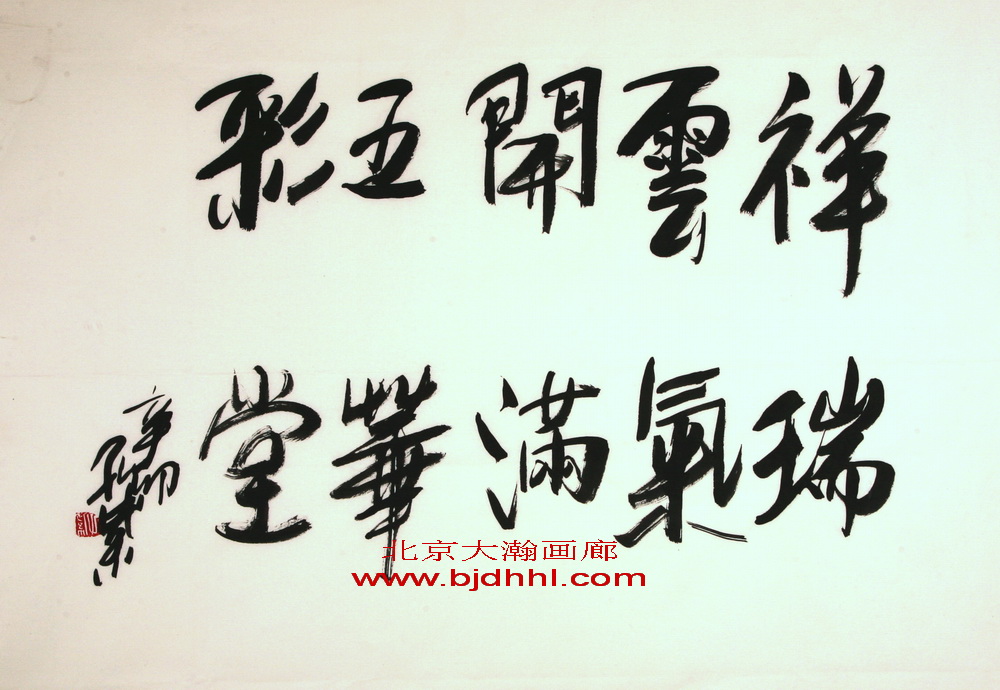 祥雲開五彩
瑞氣滿華堂
辛卯
孔紫
北京大瀚画廊
www.bjdhhl.com